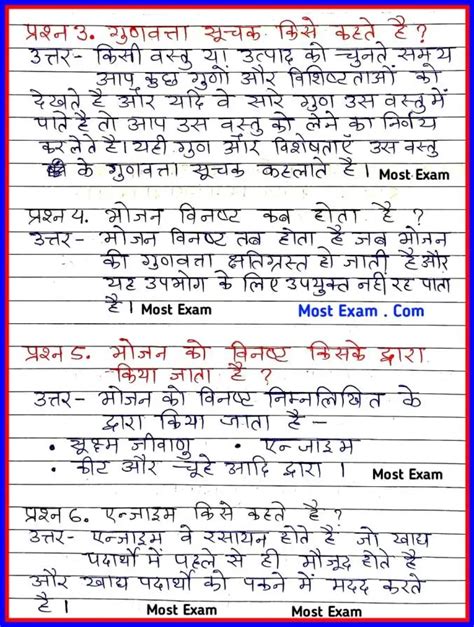 प्रश्न 3. गुणवत्ता सूचक किसे कहते है ?
उत्तर- किसी वस्तु या उत्पाद को चुनते समय
आप कुछ गुणों और विशिष्टताओं को
देखते है और यदि वे सारे गुण उस वस्तु में
पाते है तो आप उस वस्तु को लेने का निर्णय
कर लेते है। यही गुण और विशेषताएँ उस वस्तु
के गुणवत्ता सूचक कहलाते है । Most Exam
प्रश्न 4. भोजन विनष्ट कब होता है ?
उत्तर- भोजन विनष्ट तब होता है जब भोजन
की गुणवत्ता क्षतिग्रस्त हो जाती है और
यह उपभोग के लिए उपयुक्त नहीं रह पाता
है । Most Exam Most Exam . Com
प्रश्न 5. भोजन को विनष्ट किसके द्वारा
किया जाता है ?
उत्तर- भोजन को विनष्ट निम्नलिखित के
द्वारा किया जाता है –
• सूक्ष्म जीवाणु • एन्जाइम
• कीट और चूहे आदि द्वारा । Most Exam
प्रश्न 6. एन्जाइम किसे कहते है ?
उत्तर- एन्जाइम वे रसायन होते हैं जो खाद्य
पदार्थो में पहले से ही मौजूद होते है
और खाद्य पदार्थो को पकने में मदद करते
है । Most Exam Most Exam